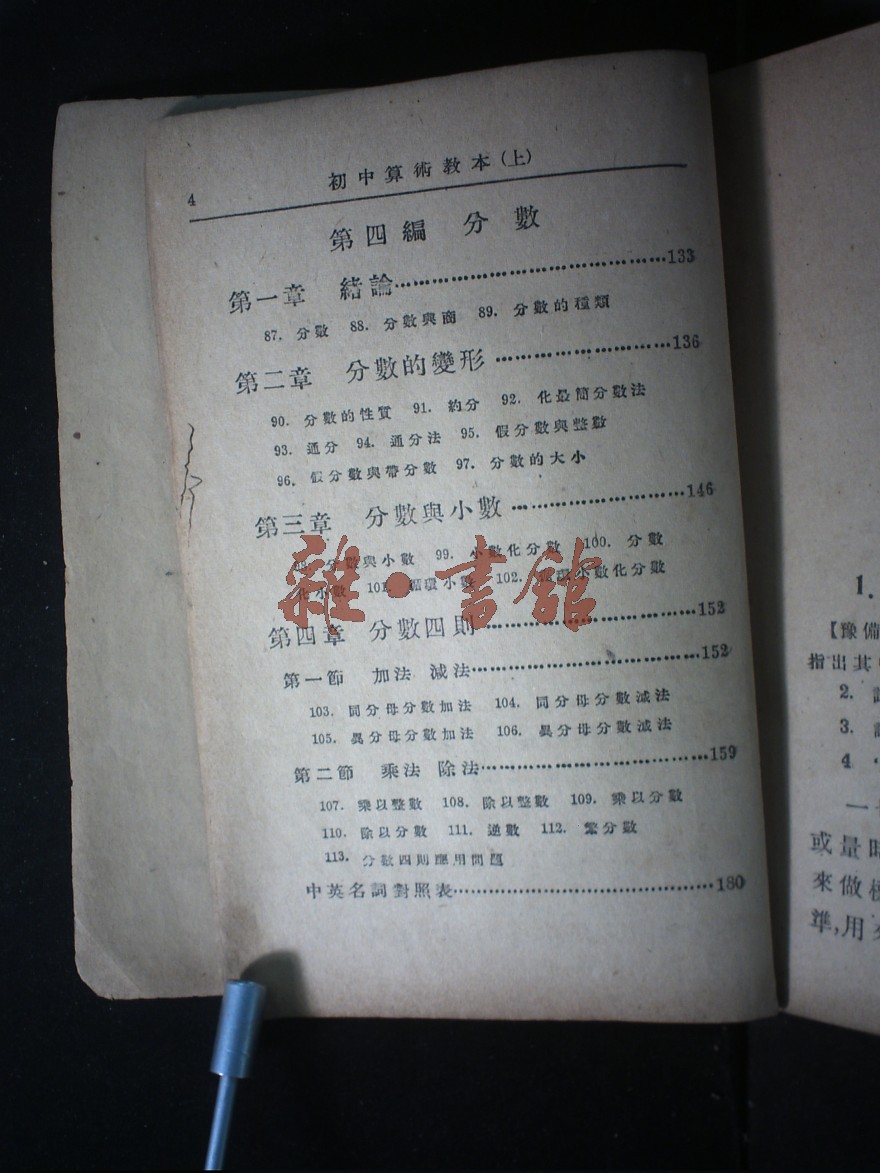 4 初中算術教本(上)
第四編 分數
第一章 結論……133
87. 分數 88. 分數與商 89. 分數的種類
第二章 分數的變形……136
90. 分數的性質 91. 約分 92. 化最簡分數法
93. 通分 94. 通分法 95. 假分數與整數
96. 假分數與帶分數 97. 分數的大小
第三章 分數與小數……146
98. 分數與小數 99. 小數化分數 100. 分數
化小數 101. 循環小數 102. 循環小數化分數
第四章 分數四則……152
第一節 加法 減法……152
103. 同分母分數加法 104. 同分母分數減法
105. 異分母分數加法 106. 異分母分數減法
第二節 乘法 除法……159
107. 乘以整數 108. 除以整數 109. 乘以分數
110. 除以分數 111. 逆數 112. 繁分數
113. 分數四則應用問題
中英名詞對照表……180
雜·書館
1.
【豫備
指出其
2.
3.
4
一
或量時
來做
準,用